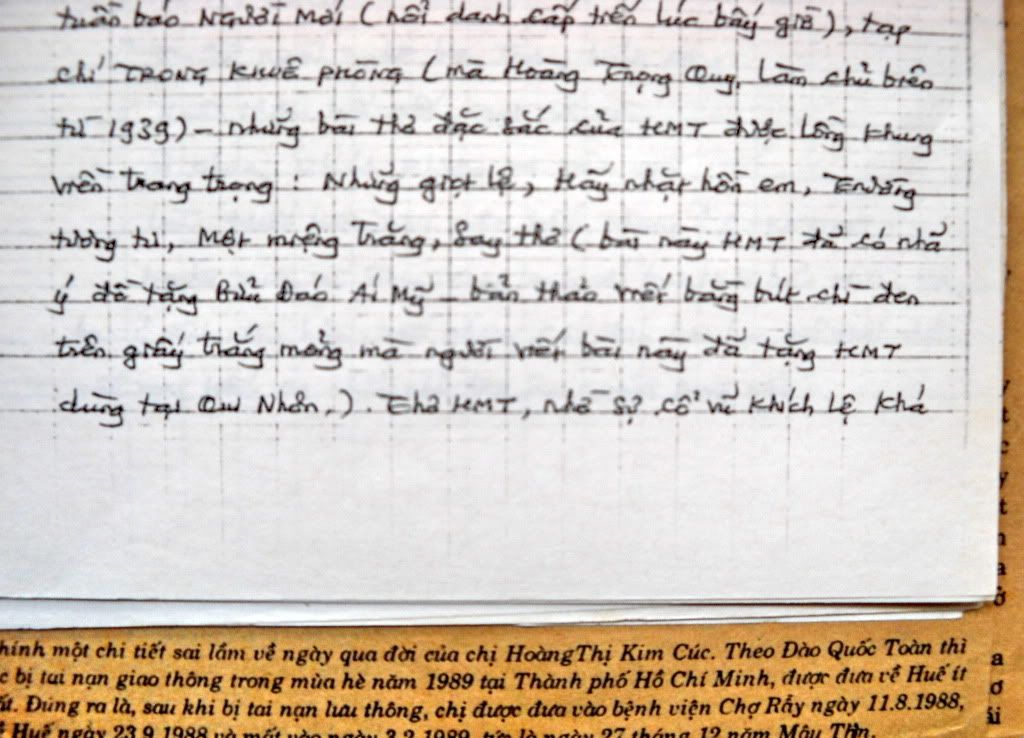 tuần báo NGƯỜI MỚI (nổi danh cấp tiến lúc bấy giờ), tạp
chí TRONG KHUÊ PHÒNG (mà Hoàng Trọng Quy làm chủ biên
từ 1939) - những bài thơ đặc sắc của HMT được lồng khung
viền trang trọng : Những giọt lệ, Hãy nhập hồn em, Trường
tương tư, Một miệng trăng, Say thơ (bài này HMT đã có nhã
ý đề tặng Bửu Đáo Ái Mỹ - bản thảo viết bằng bút chì đen
trên giấy trắng mỏng mà người viết bài này đã tặng HMT
dùng tại Qui Nhơn.). Thơ HMT, nhờ sự cổ vũ khích lệ khá
hính một chi tiết sai lầm về ngày qua đời của chị Hoàng Thị Kim Cúc. Theo Đào Quốc Toàn thì
c bị tai nạn giao thông trong mùa hè năm 1989 tại Thành phố Hồ Chí Minh, được đưa về Huế ít
ất. Đúng ra là, sau khi bị tai nạn lưu thông, chị được đưa vào bệnh viện Chợ Rẫy ngày 11.8.1988,
Huế ngày 23.9.1988 và mất vào ngày 3.2.1989, tức là ngày 27 tháng 12 năm Mậu Thìn.